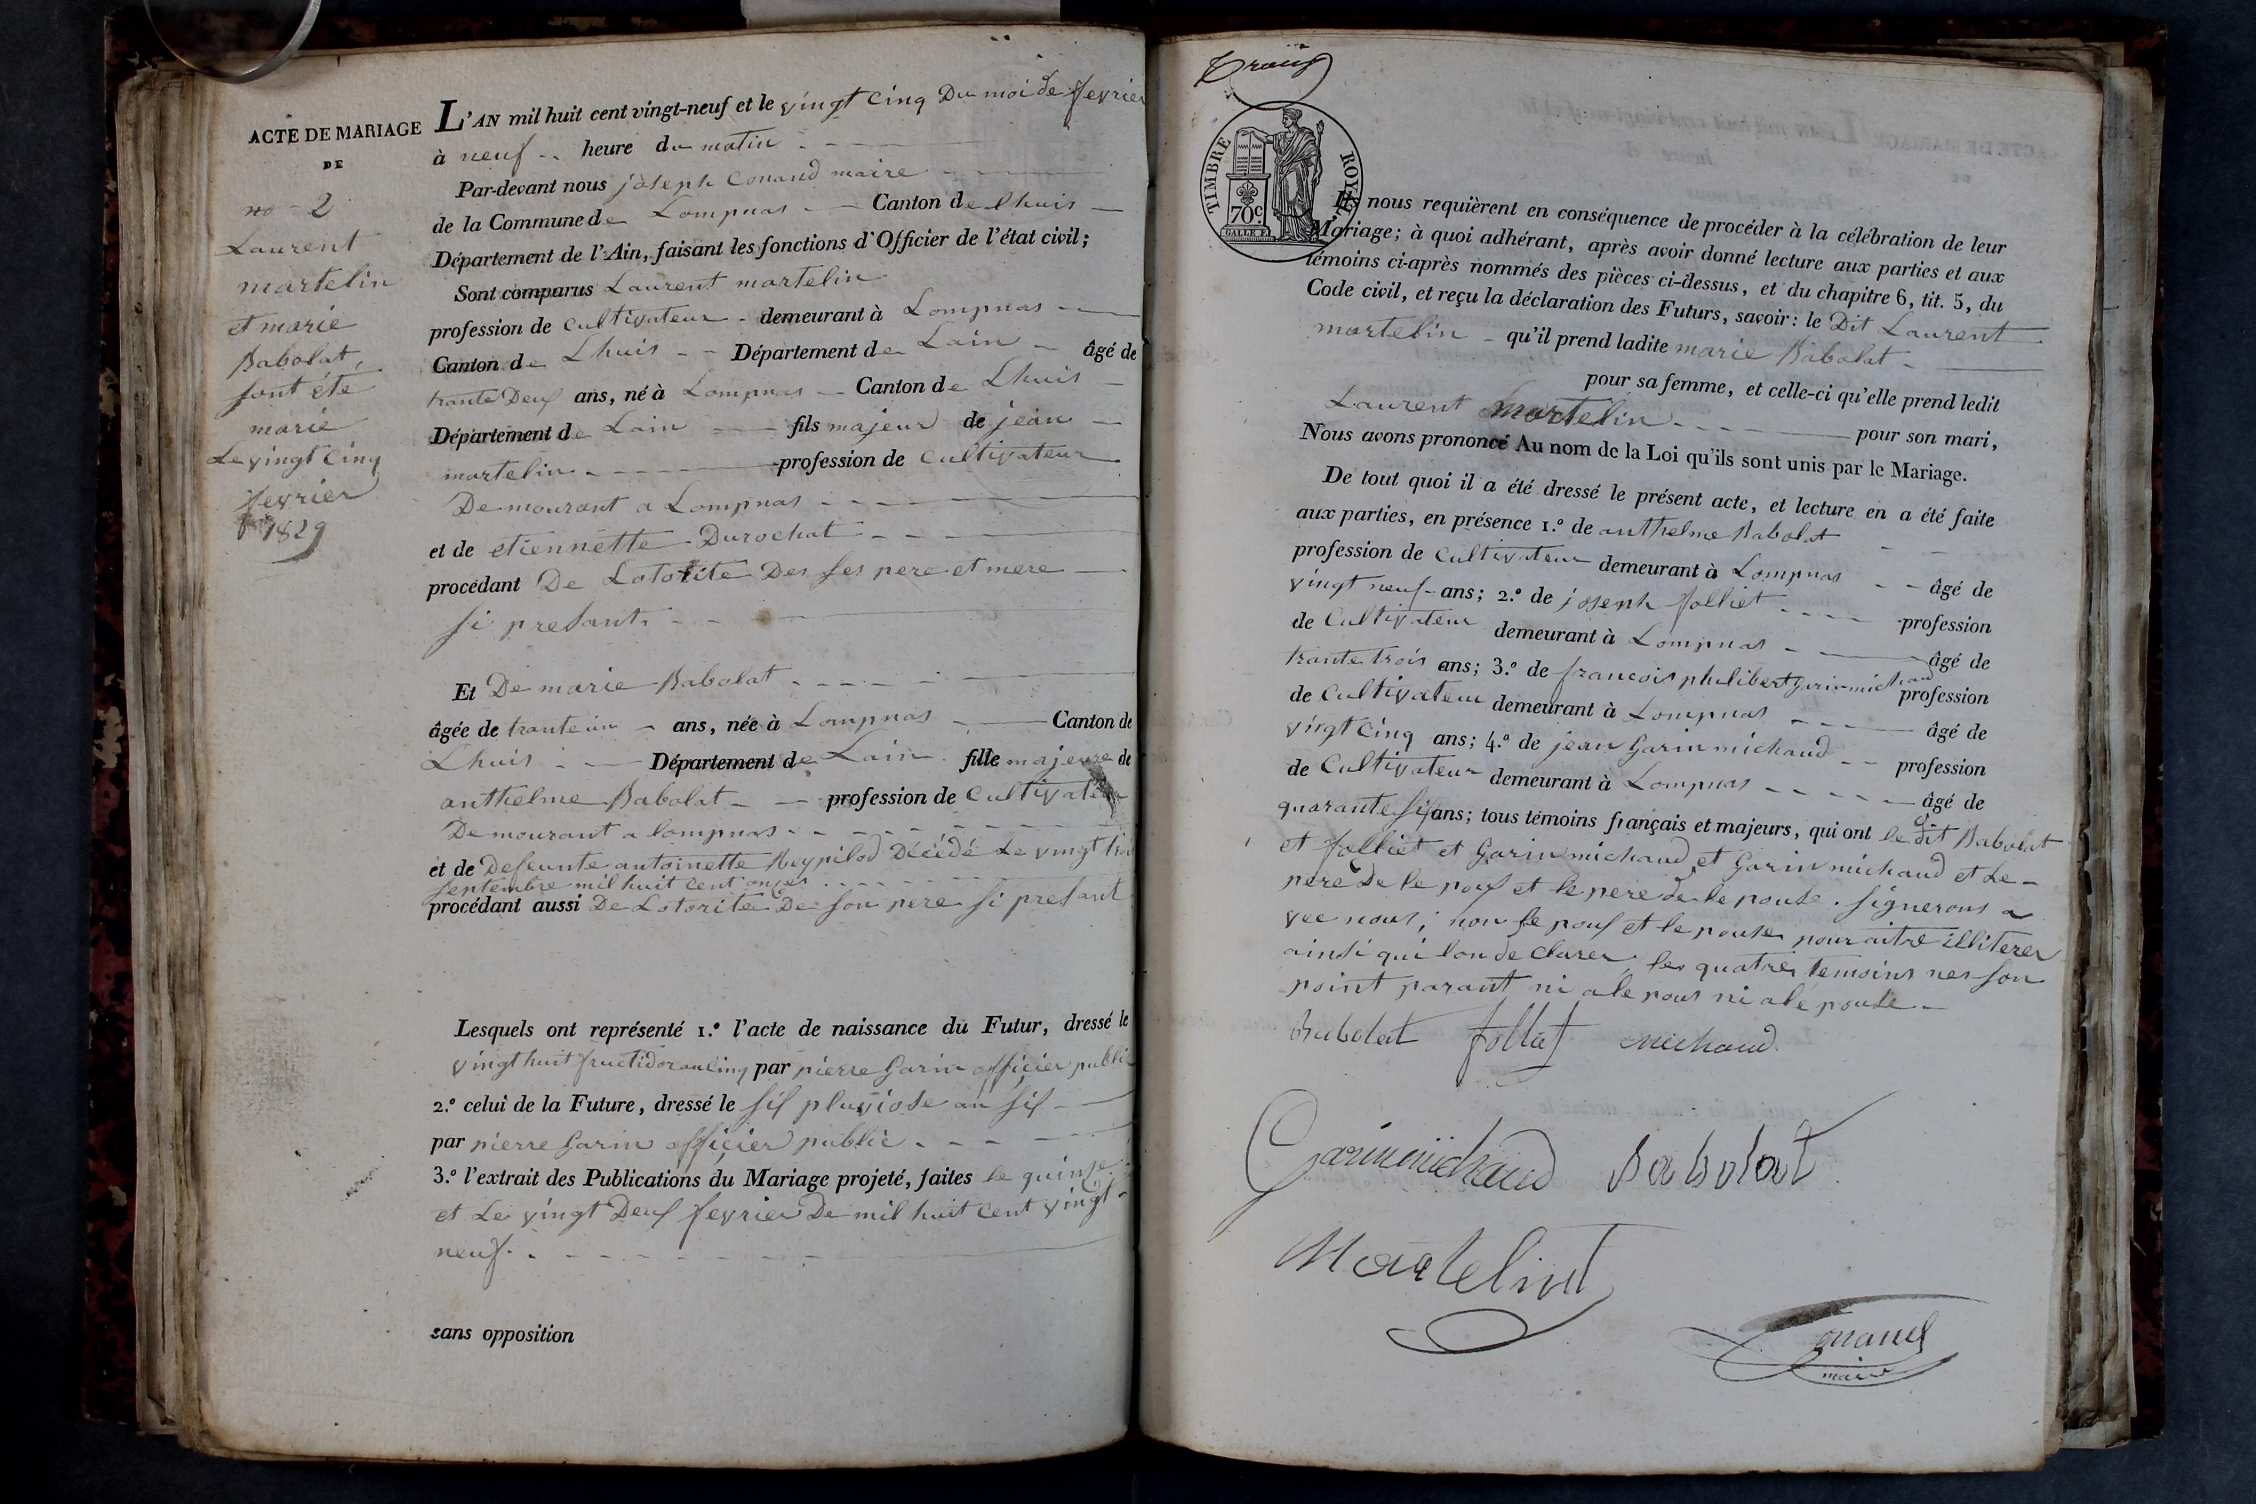 ACTE DE MARIAGE
DE
no - 2
Laurent
martelin
et marie
Babolat
sont été
marié
Le vingt cinq
fevrier
1829
L'AN mil huit cent vingt-neuf et le vingt cinq Du moi de fevrier
à neuf heure du matin
Par-devant nous joseph Conand maire
de la Commune de Lompnas Canton de lhuis
Département de l'Ain, faisant les fonctions d'Officier de l'état civil;
Sont comparus Laurent martelin
profession de Cultivateur demeurant à Lompnas
Canton de Lhuis Département de Lain âgé de
trante Deux ans, né à Lompnas Canton de Lhuis
Département de Lain fils majeur de jean
martelin profession de Cultivateur
Demourant a Lompnas
et de etiennette Durochat
procédant De Lotorite Des ses pere et mere
si presant
Et De marie Babolat
âgée de trante un ans, née à Lompnas Canton de
Lhuis Département de Lain fille majeure de
anthelme Babolat profession de Cultivateur
Demourant a lompnas
et de Defeunte antoinette Reypilod Décédé Le vingt trois
septembre mil huit cent onze
procédant aussi De Lotorité De son pere si presant
Lesquels ont représenté 1.º l'acte de naissance du Futur, dressé le
vingt huit fructidor an cinq par pierre Garin officier public
2.º celui de la Future, dressé le six pluviose an six
par pierre Garin officier public
3.º l'extrait des Publications du Mariage projeté, faites le quinze
et Le vingt Deux fevrier De mil huit cent vingt
neuf
sans opposition
TIMBRE ROYAL
70c
Et nous requièrent en conséquence de procéder à la célébration de leur
Mariage; à quoi adhérant, après avoir donné lecture aux parties et aux
témoins ci-après nommés des pièces ci-dessus, et du chapitre 6, tit. 5, du
Code civil, et reçu la déclaration des Futurs, savoir: le Dit Laurent
martelin qu'il prend ladite marie Babolat
pour sa femme, et celle-ci qu'elle prend ledit
Laurent martelin pour son mari,
Nous avons prononcé Au nom de la Loi qu'ils sont unis par le Mariage.
De tout quoi il a été dressé le présent acte, et lecture en a été faite
aux parties, en présence 1.º de anthelme Babolat
profession de Cultivateur demeurant à Lompnas âgé de
vingt neuf ans; 2.º de joseph folliet profession
de Cultivateur demeurant à Lompnas âgé de
trante trois ans; 3.º de francois philibert garin michaud profession
de Cultivateur demeurant à Lompnas âgé de
vingt cinq ans; 4.º de jean Garin michaud profession
de Cultivateur demeurant à Lompnas âgé de
quarante six ans; tous témoins français et majeurs, qui ont le dit Babolat
et folliet et Garin michaud et Garin michaud et Le
pere De le poux et le pere de le pouse signerons a
vec nous; non le poux et le pouse pour aitre illiterer
ainsi qui lon de clarer, les quatres temoins nes son
point parant ni a le pous ni a lé pouse
Babolat follet michaud
Garinmichaud Babolat
Martelint
Conand
maire